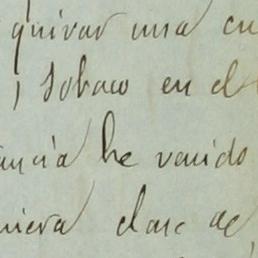 quivar una cu
, Sobaco en el
ancia he venido
niera clase de